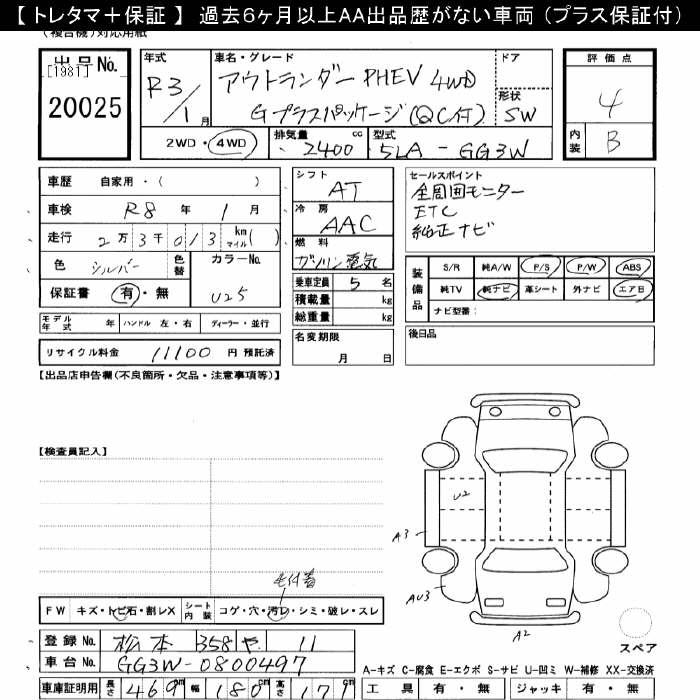 【 トレタマ＋保証 】 過去6ヶ月以上AA出品歴がない車両（プラス保証付）
（複合機）対応用紙
出品No.
[1981]
20025
年式
R3/1月
車名・グレード
アウトランダーPHEV 4WD
Gプラスパッケージ(QC付)
ドア
形状
SW
評価点
4
内装
B
2WD・4WD
排気量
2400 cc
型式
5LA-GG3W
車歴 自家用・（ ）
車検 R8年 1月
走行 2万3千013 km マイル( )
色 シルバー 色替 カラーNo.
保証書 有・無 U25
モデル年式 年 ハンドル 左・右 ディーラー・並行
リサイクル料金 11100 円 預託済
シフト
AT
冷房
AAC
燃料
ガソリン電気
乗車定員 5 名
積載量 kg
総重量 kg
名変期限
月 日
セールスポイント
全周囲モニター
ETC
純正ナビ
装備品
S/R 純A/W P/S P/W ABS
純TV 純ナビ 革シート 外ナビ エアB
ナビ型番：
後日品
【出品店申告欄（不良箇所・欠品・注意事項等）】
【検査員記入】
U2
A3
AU3
A2
スペア
毛付着
FW キズ・トビ石・割レX シート内装 コゲ・穴・汚レ・シミ・破レ・スレ
登録No. 松本 358 や 11
車台No. GG3W-0800497
車庫証明用 長さ 469cm 幅 180cm 高さ 171cm
A-キズ C-腐食 E-エクボ S-サビ U-凹ミ W-補修 XX-交換済
工具 有・無 ジャッキ 有・無